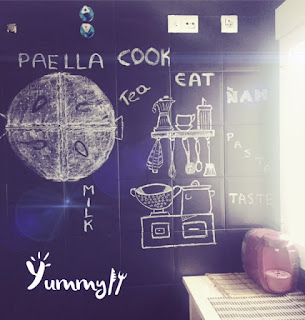 PAELLA COOK
Tea
EAT
ÑAM
PASTA
MILK
TASTE
Yummy